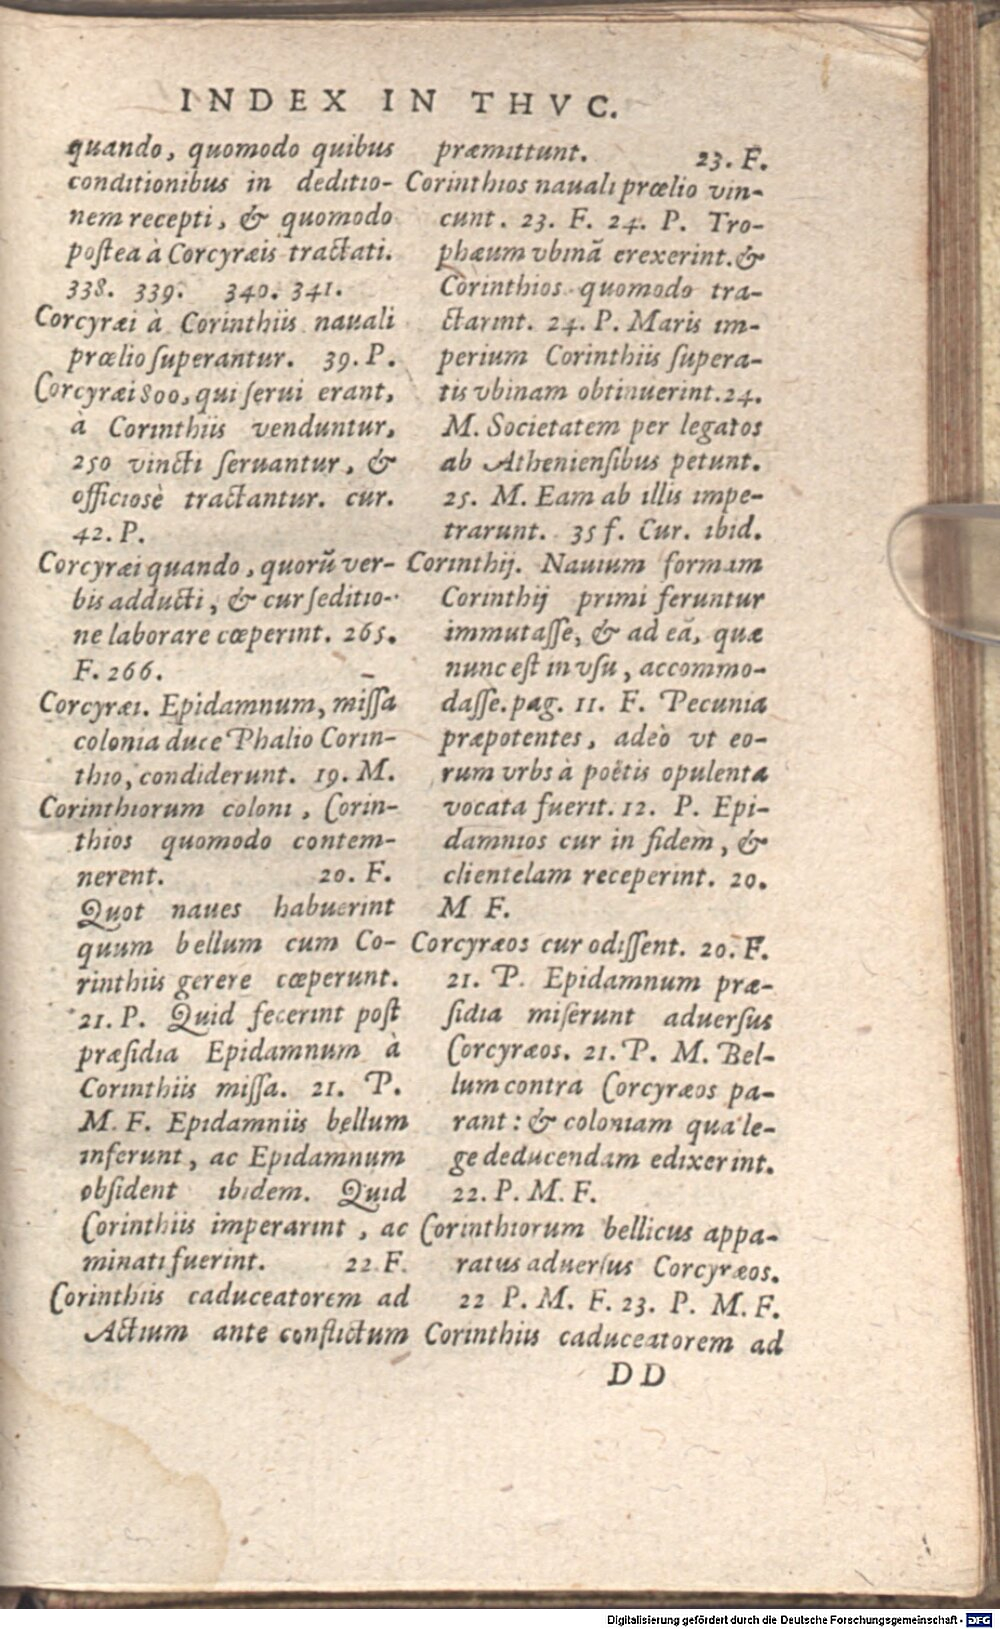 INDEX IN THVC.
quando, quomodo quibus
conditionibus in deditio-
nem recepti, & quomodo
postea à Corcyræis tractati.
338. 339. 340. 341.
Corcyræi à Corinthiis nauali
prœlio superantur. 39. P.
Corcyræi 800, qui serui erant,
à Corinthiis venduntur,
250 vincti seruantur, &
officiosè tractantur. cur.
42. P.
Corcyræi quando, quorũ ver-
bis adducti, & cur seditio-
ne laborare cœperint. 265.
F. 266.
Corcyræi. Epidamnum, missa
colonia duce Phalio Corin-
thio, condiderunt. 19. M.
Corinthiorum coloni, Corin-
thios quomodo contem-
nerent. 20. F.
Quot naues habuerint
quum bellum cum Co-
rinthiis gerere cœperunt.
21. P. Quid fecerint post
præsidia Epidamnum à
Corinthiis missa. 21. P.
M. F. Epidamniis bellum
inferunt, ac Epidamnum
obsident ibidem. Quid
Corinthiis imperarint, ac
minati fuerint. 22 F.
Corinthiis caduceatorem ad
Actium ante conflictum
præmittunt. 23. F.
Corinthios nauali prœlio vin-
cunt. 23. F. 24. P. Tro-
phæum vbinã erexerint. &
Corinthios quomodo tra-
ctarint. 24. P. Maris im-
perium Corinthiis supera-
tis vbinam obtinuerint. 24.
M. Societatem per legatos
ab Atheniensibus petunt.
25. M. Eam ab illis impe-
trarunt. 35 f. Cur. ibid.
Corinthij. Nauium formam
Corinthij primi feruntur
immutasse, & ad eã, quæ
nunc est in vsu, accommo-
dasse. pag. 11. F. Pecunia
præpotentes, adeò vt eo-
rum vrbs à poëtis opulenta
vocata fuerit. 12. P. Epi-
damnios cur in fidem, &
clientelam receperint. 20.
M F.
Corcyræos cur odissent. 20. F.
21. P. Epidamnum præ-
sidia miserunt aduersus
Corcyræos. 21. P. M. Bel-
lum contra Corcyræos pa-
rant: & coloniam qua le-
ge deducendam edixerint.
22. P. M. F.
Corinthiorum bellicus appa-
ratus aduersus Corcyræos.
22 P. M. F. 23. P. M. F.
Corinthiis caduceatorem ad
DD
Digitalisierung gefördert durch die Deutsche Forschungsgemeinschaft - DFG